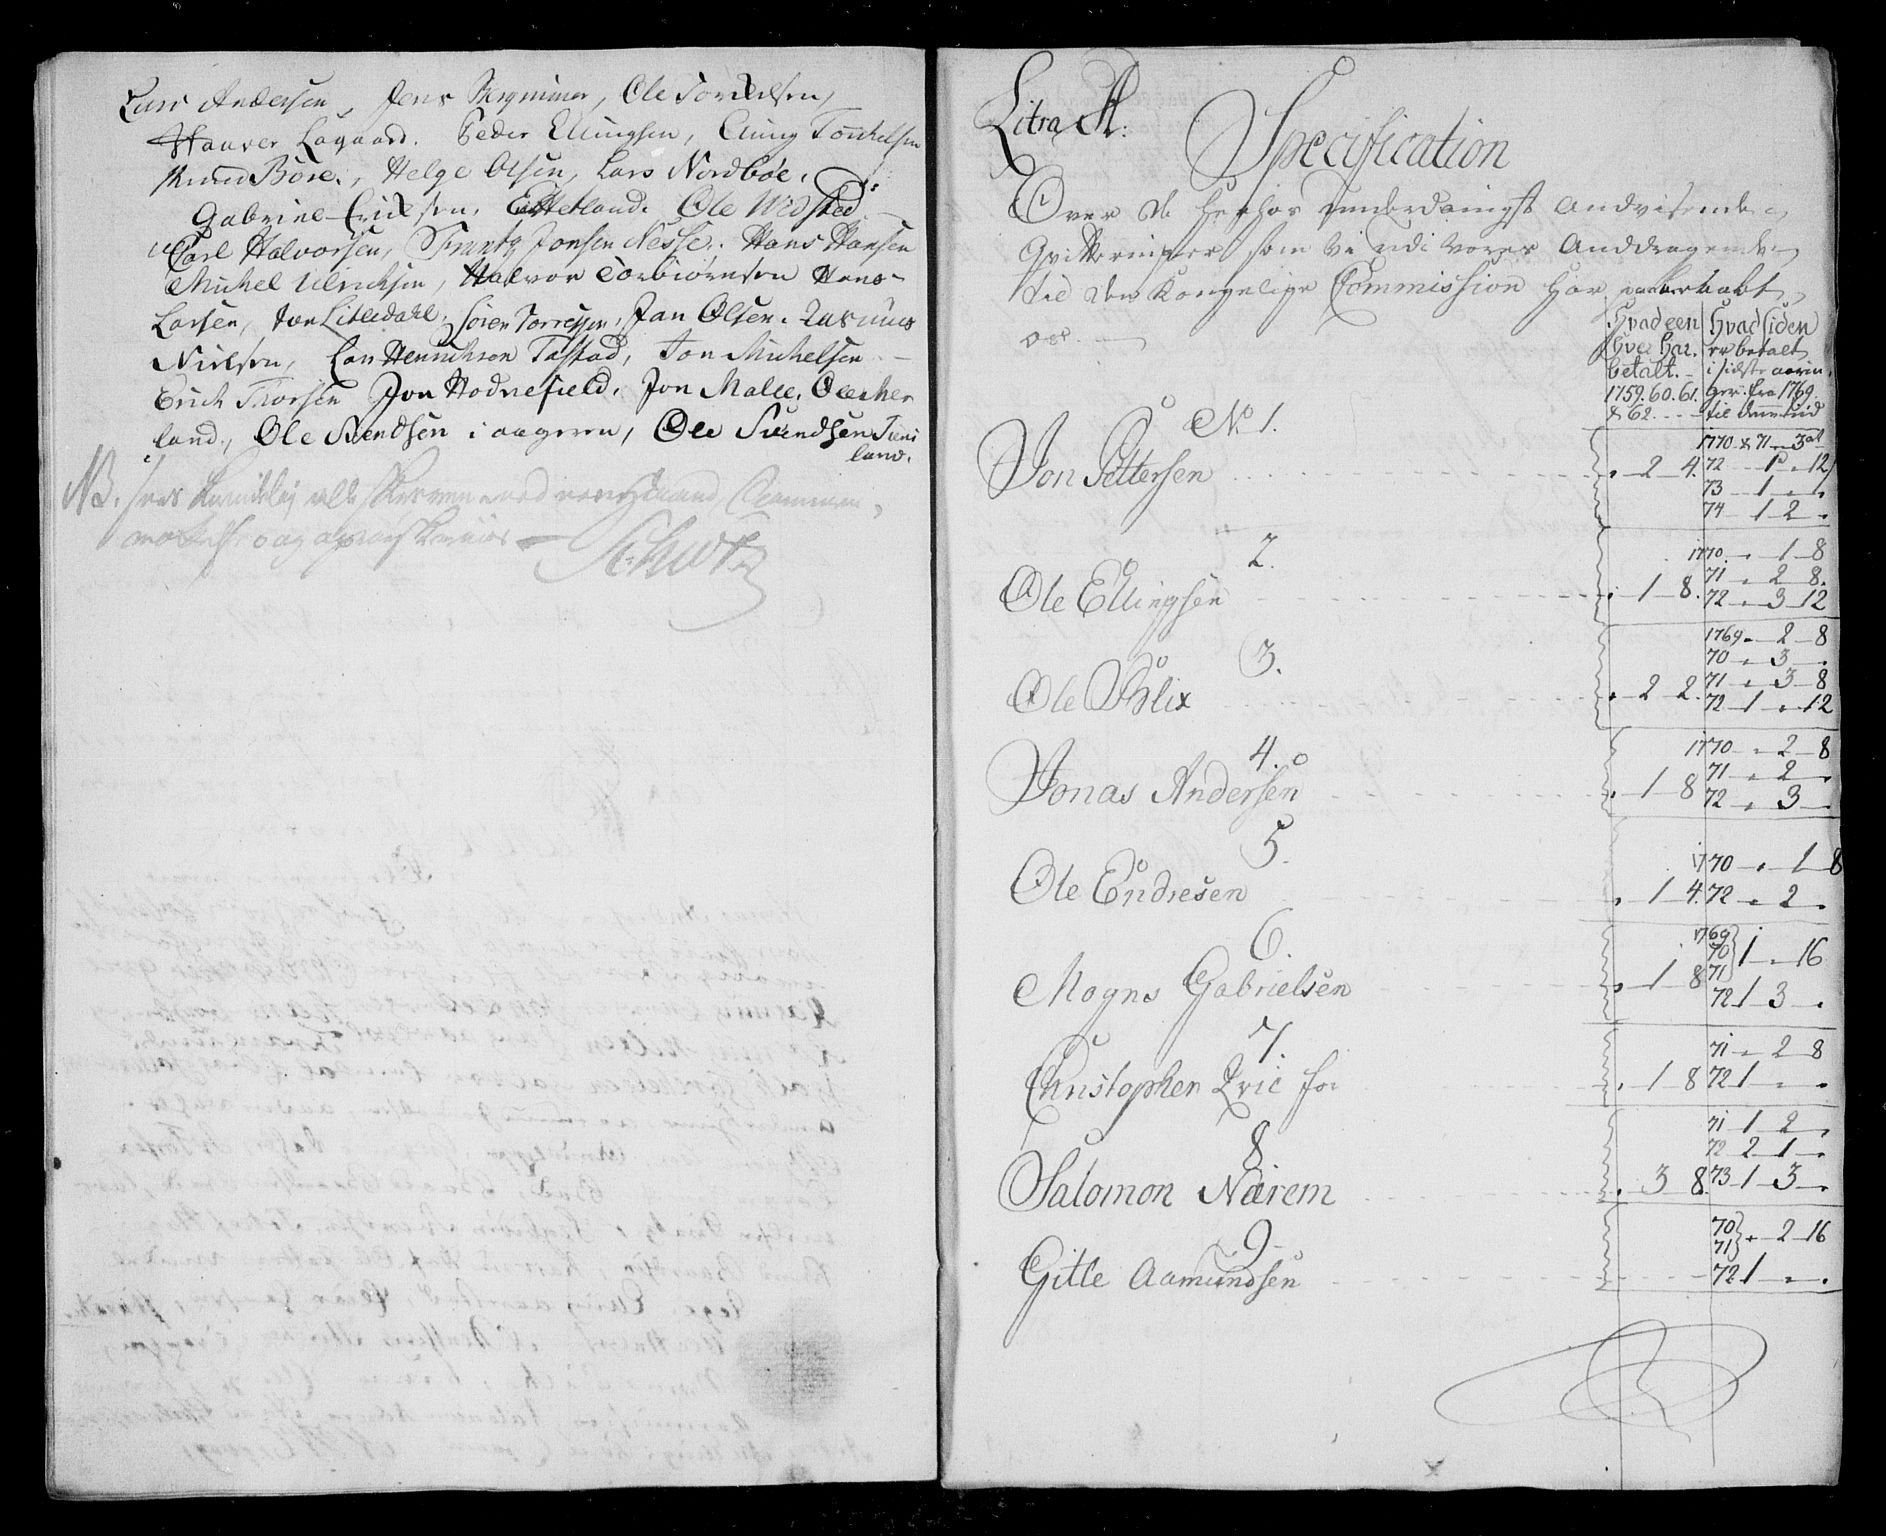 Lars Andersen, Jens Bergmimer, Ole Torkelsen,
Haaver Lagaard. Peder Ellingsen, Elling Tonnkelsen
Knud Bore., Helge Olsen, Lars Nordbøe.
Gabriel Ericksen. E Hetland. Ole Wedsted
Carl Halvorsen, Frantz Jonsen Nesse. Hans Hansen
Michel Ulrichsen, Halvor Torbiørnsen Hans
Larsen, Jon Litledahl. Søren Torresen. Jan Olsen. Rasmus
Nielsen, Lars Henrichson Tastad, Jon Michelsen
Erich Thorsen Jon Hodnefield. Jon Malle. Ole Mer
land., Ole Svendsen i aageren, Ole Svendsen Tieni
land.
NB.
Schwartz
Litra A:
Specification
Over de herhos underdanigst andvisende
Qvitteringer som vi udi vores Anddragende
til den Kongelige Commission har paaberaabt
os.
Hvad een hver har betalt. 1759. 60. 61. & 62.
Hvad siden er betalt i sidste aaringer. fra 1769. til denne tiid
No. 1.
Jon Pettersen . 2 4. 1770 & 71 3
72 1 . 12
73 1 . .
74 1 2 .
2.
Ole Ellingsen . 1 8. 1770 . 1 8
71 . 2 8.
72 . 3 12
3.
Ole Phlix . 2 2. 1769 . 2 8
70 . 3 .
71 . 3 8
72 1 . 12
4.
Jonas Andersen . 1 8 1770 . 2 8
71 . 2 .
72 . 3 .
5.
Ole Endresen . 1 4. 1770 . 1 8
72 . 2 .
6.
Mogns Gabrielsen . 1 8 1769 70 71 } 1 . 16
72 1 3 .
7.
Christopher Qvie for . 1 8 71 . 2 8
72 1 . .
8
Salomon Nærem . 3 8. 71 1 2 .
72 2 1 .
73 1 3 .
9
Gitle Aamundsen 70 71 } . 2 16
72 1 . .